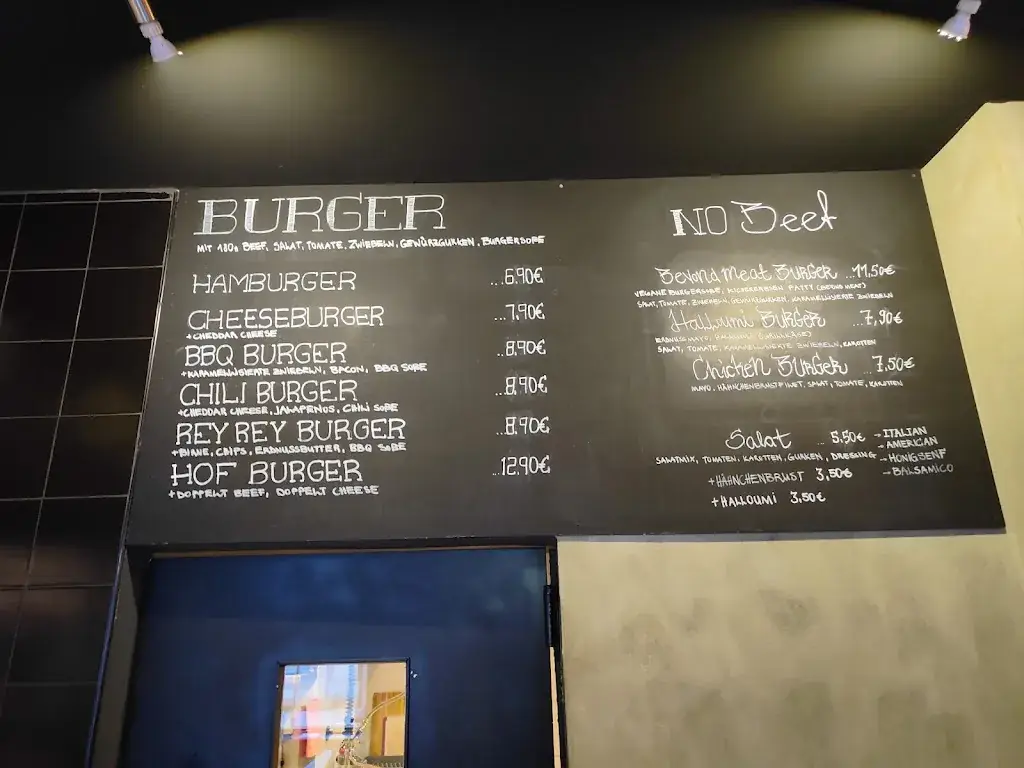 BURGER
MIT 180g BEEF, SALAT, TOMATE, ZWIEBELN, GEWÜRZGURKEN, BURGERSOßE
HAMBURGER ...6,90€
CHEESEBURGER ...7,90€
+CHEDDAR CHEESE
BBQ BURGER ...8,90€
+KARAMELLISIERTE ZWIEBELN, BACON, BBQ SOßE
CHILI BURGER ...8,90€
+CHEDDAR CHEESE, JALAPENOS, CHILI SOßE
REY REY BURGER ...8,90€
+BIRNE, CHIPS, ERDNUSSBUTTER, BBQ SOßE
HOF BURGER ...12,90€
+DOPPELT BEEF, DOPPELT CHEESE
NO Beef
Beyond Meat Burger ...11,50€
VEGANE BURGERSOßE, KICHERERBSEN PATTY (BEYOND MEAT)
SALAT, TOMATE, ZWIEBELN, GEWÜRZGURKEN, KARAMELLISIERTE ZWIEBELN
Halloumi Burger ...7,90€
ERDNUSSMAYO, HALLOUMI
SALAT, TOMATE, KARAMELLISIERTE ZWIEBELN, KAROTTEN
Chicken Burger ...7,50€
MAYO, HÄHNCHENBRUSTFILET, SALAT, TOMATE, KAROTTEN
Salat ... 5,50€
SALATMIX, TOMATEN, KAROTTEN, GURKEN, DRESSING
→ITALIAN
→AMERICAN
→HONIGSENF
→BALSAMICO
+HÄHNCHENBRUST 3,50€
+HALLOUMI 3,50€